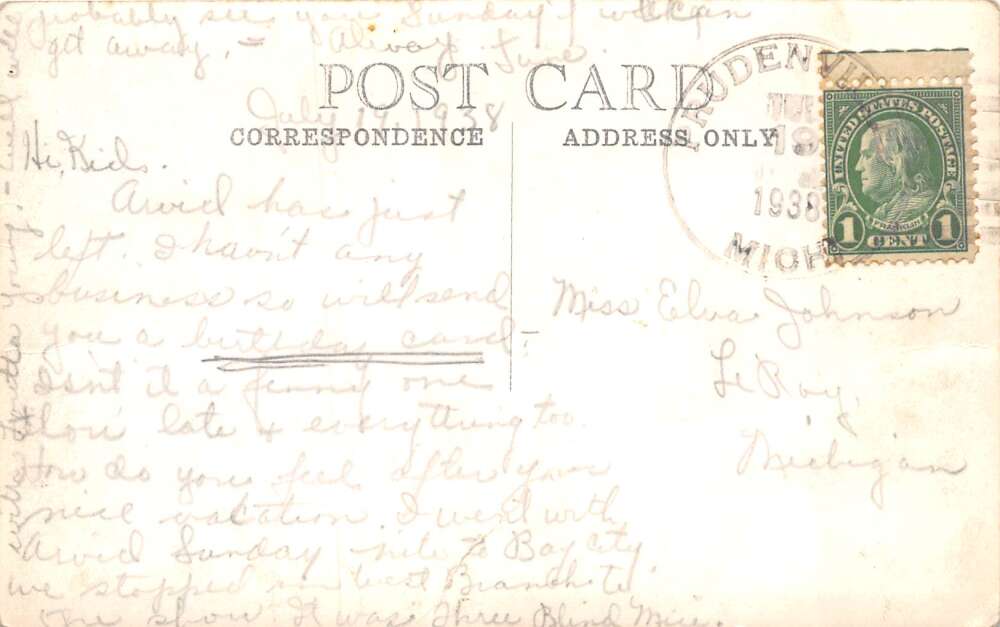 probably see you Sunday if we can
get away. - Always June.
POST CARD
July 19, 1938
CORRESPONDENCE
ADDRESS ONLY
Hi, Kids.
Arvid has just
left. I havn't any
business so will send
you a birthday card
Isn't it a funny one
I'm late & everything too.
How do you feel after your
nice vacation. I went with
Arvid Sunday nite to Bay City
we stopped in West Branch to
the show. It was Three Blind Mice.
write
PRUDENVILLE
19
1938
MICH
UNITED STATES POSTAGE
FRANKLIN
1 CENT 1
Miss Elva Johnson
Le Roy,
Michigan